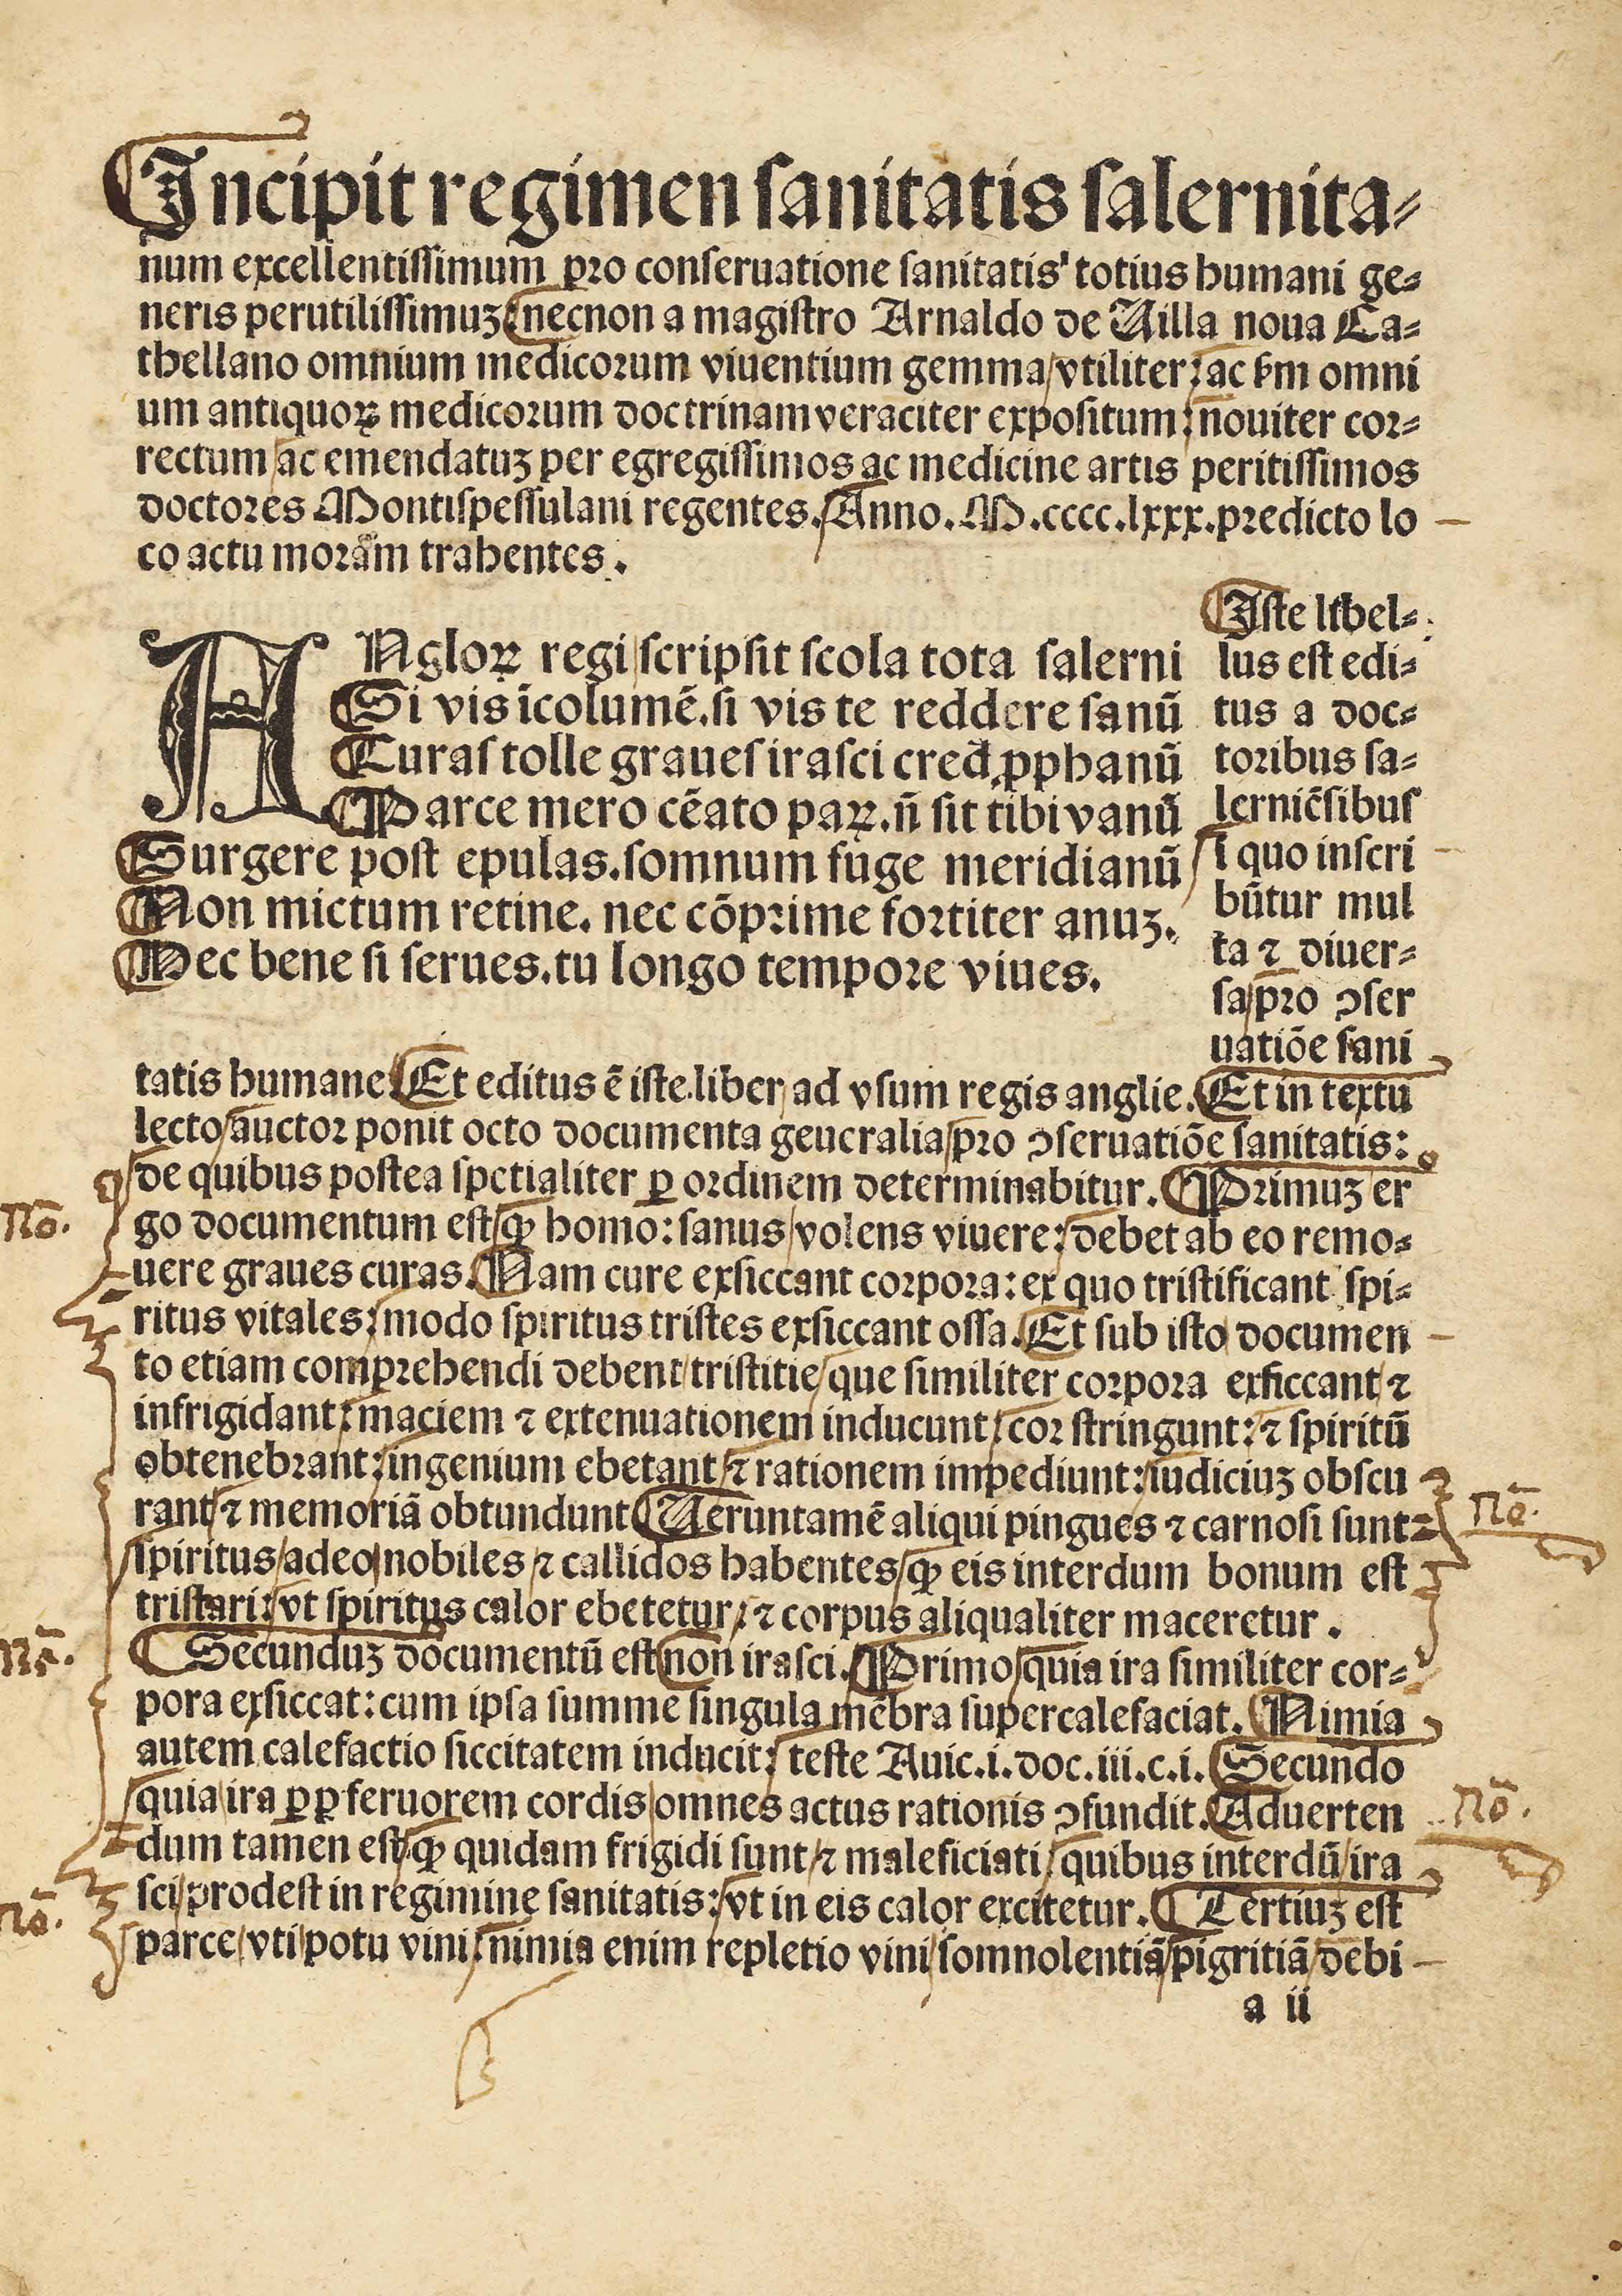 Incipit regimen sanitatis salernita⸗
num excellentissimum pro conseruatione sanitatis totius humani ge⸗
neris perutilissimuꝫ necnon a magistro Arnaldo de Uilla noua Ca⸗
thellano omnium medicorum viuentium gemma vtiliter: ac ẜm omni
um antiquoꝝ medicorum doctrinam veraciter expositum: nouiter cor⸗
rectum ac emendatuꝫ per egregissimos ac medicine artis peritissimos
doctores Montispessulani regentes. Anno. M.cccc.lxxx. predicto lo
co actu moram trahentes.
ANgloꝝ regi scripsit scola tota salerni
Si vis īcolumē. si vis te reddere sanū
Curas tolle graues irasci cred ꝓphanū
Parce mero cēato paꝝ. ñ sit tibi vanū
Surgere post epulas. somnum fuge meridianū
Non mictum retine. nec cōprime fortiter anuꝫ.
Hec bene si serues. tu longo tempore viues.
Iste libel⸗
lus est edi⸗
tus a doc⸗
toribus sa⸗
lerniēsibus
ī quo inscri
būtur mul
ta ⁊ diuer⸗
sa pro ↄser
uatiōe sani
tatis humane Et editus ē iste liber ad vsum regis anglie. Et in textu
lecto auctor ponit octo documenta geueralia pro ↄseruatiōe sanitatis:
de quibus postea spetialiter ꝑ ordinem determinabitur. Primuꝫ er
go documentum est ꝙ homo: sanus volens viuere: debet ab eo remo⸗
uere graues curas. Nam cure exsiccant corpora: ex quo tristificant spi⸗
ritus vitales: modo spiritus tristes exsiccant ossa. Et sub isto documen
to etiam comprehendi debent tristitie que similiter corpora exsiccant ⁊
infrigidant: maciem ⁊ extenuationem inducunt: cor stringunt: ⁊ spiritū
obtenebrant: ingenium ebetant ⁊ rationem impediunt: iudiciuꝫ obscu
rant ⁊ memoriā obtundunt Ueruntamē aliqui pingues ⁊ carnosi sunt
spiritus adeo nobiles ⁊ callidos habentes ꝙ eis interdum bonum est
tristari: vt spiritus calor ebetetur: ⁊ corpus aliqualiter maceretur.
Secunduꝫ documentū est non irasci. Primo quia ira similiter cor⸗
pora exsiccat: cum ipsa summe singula mēbra supercalefaciat. Nimia
autem calefactio siccitatem inducit: teste Auic. i. doc. iii. c. i. Secundo
quia ira ꝓpꝑ feruorem cordis omnes actus rationis ↄfundit. Aduerten
dum tamen est ꝙ quidam frigidi sunt ⁊ maleficiati quibus interdū ira
sci prodest in regimine sanitatis: vt in eis calor excitetur. Tertiuꝫ est
parce vti potu vini: nimia enim repletio vini somnolentiā pigritiā debi
a ii
Nō.
Nō.
Nō.
Nō.
Nō.